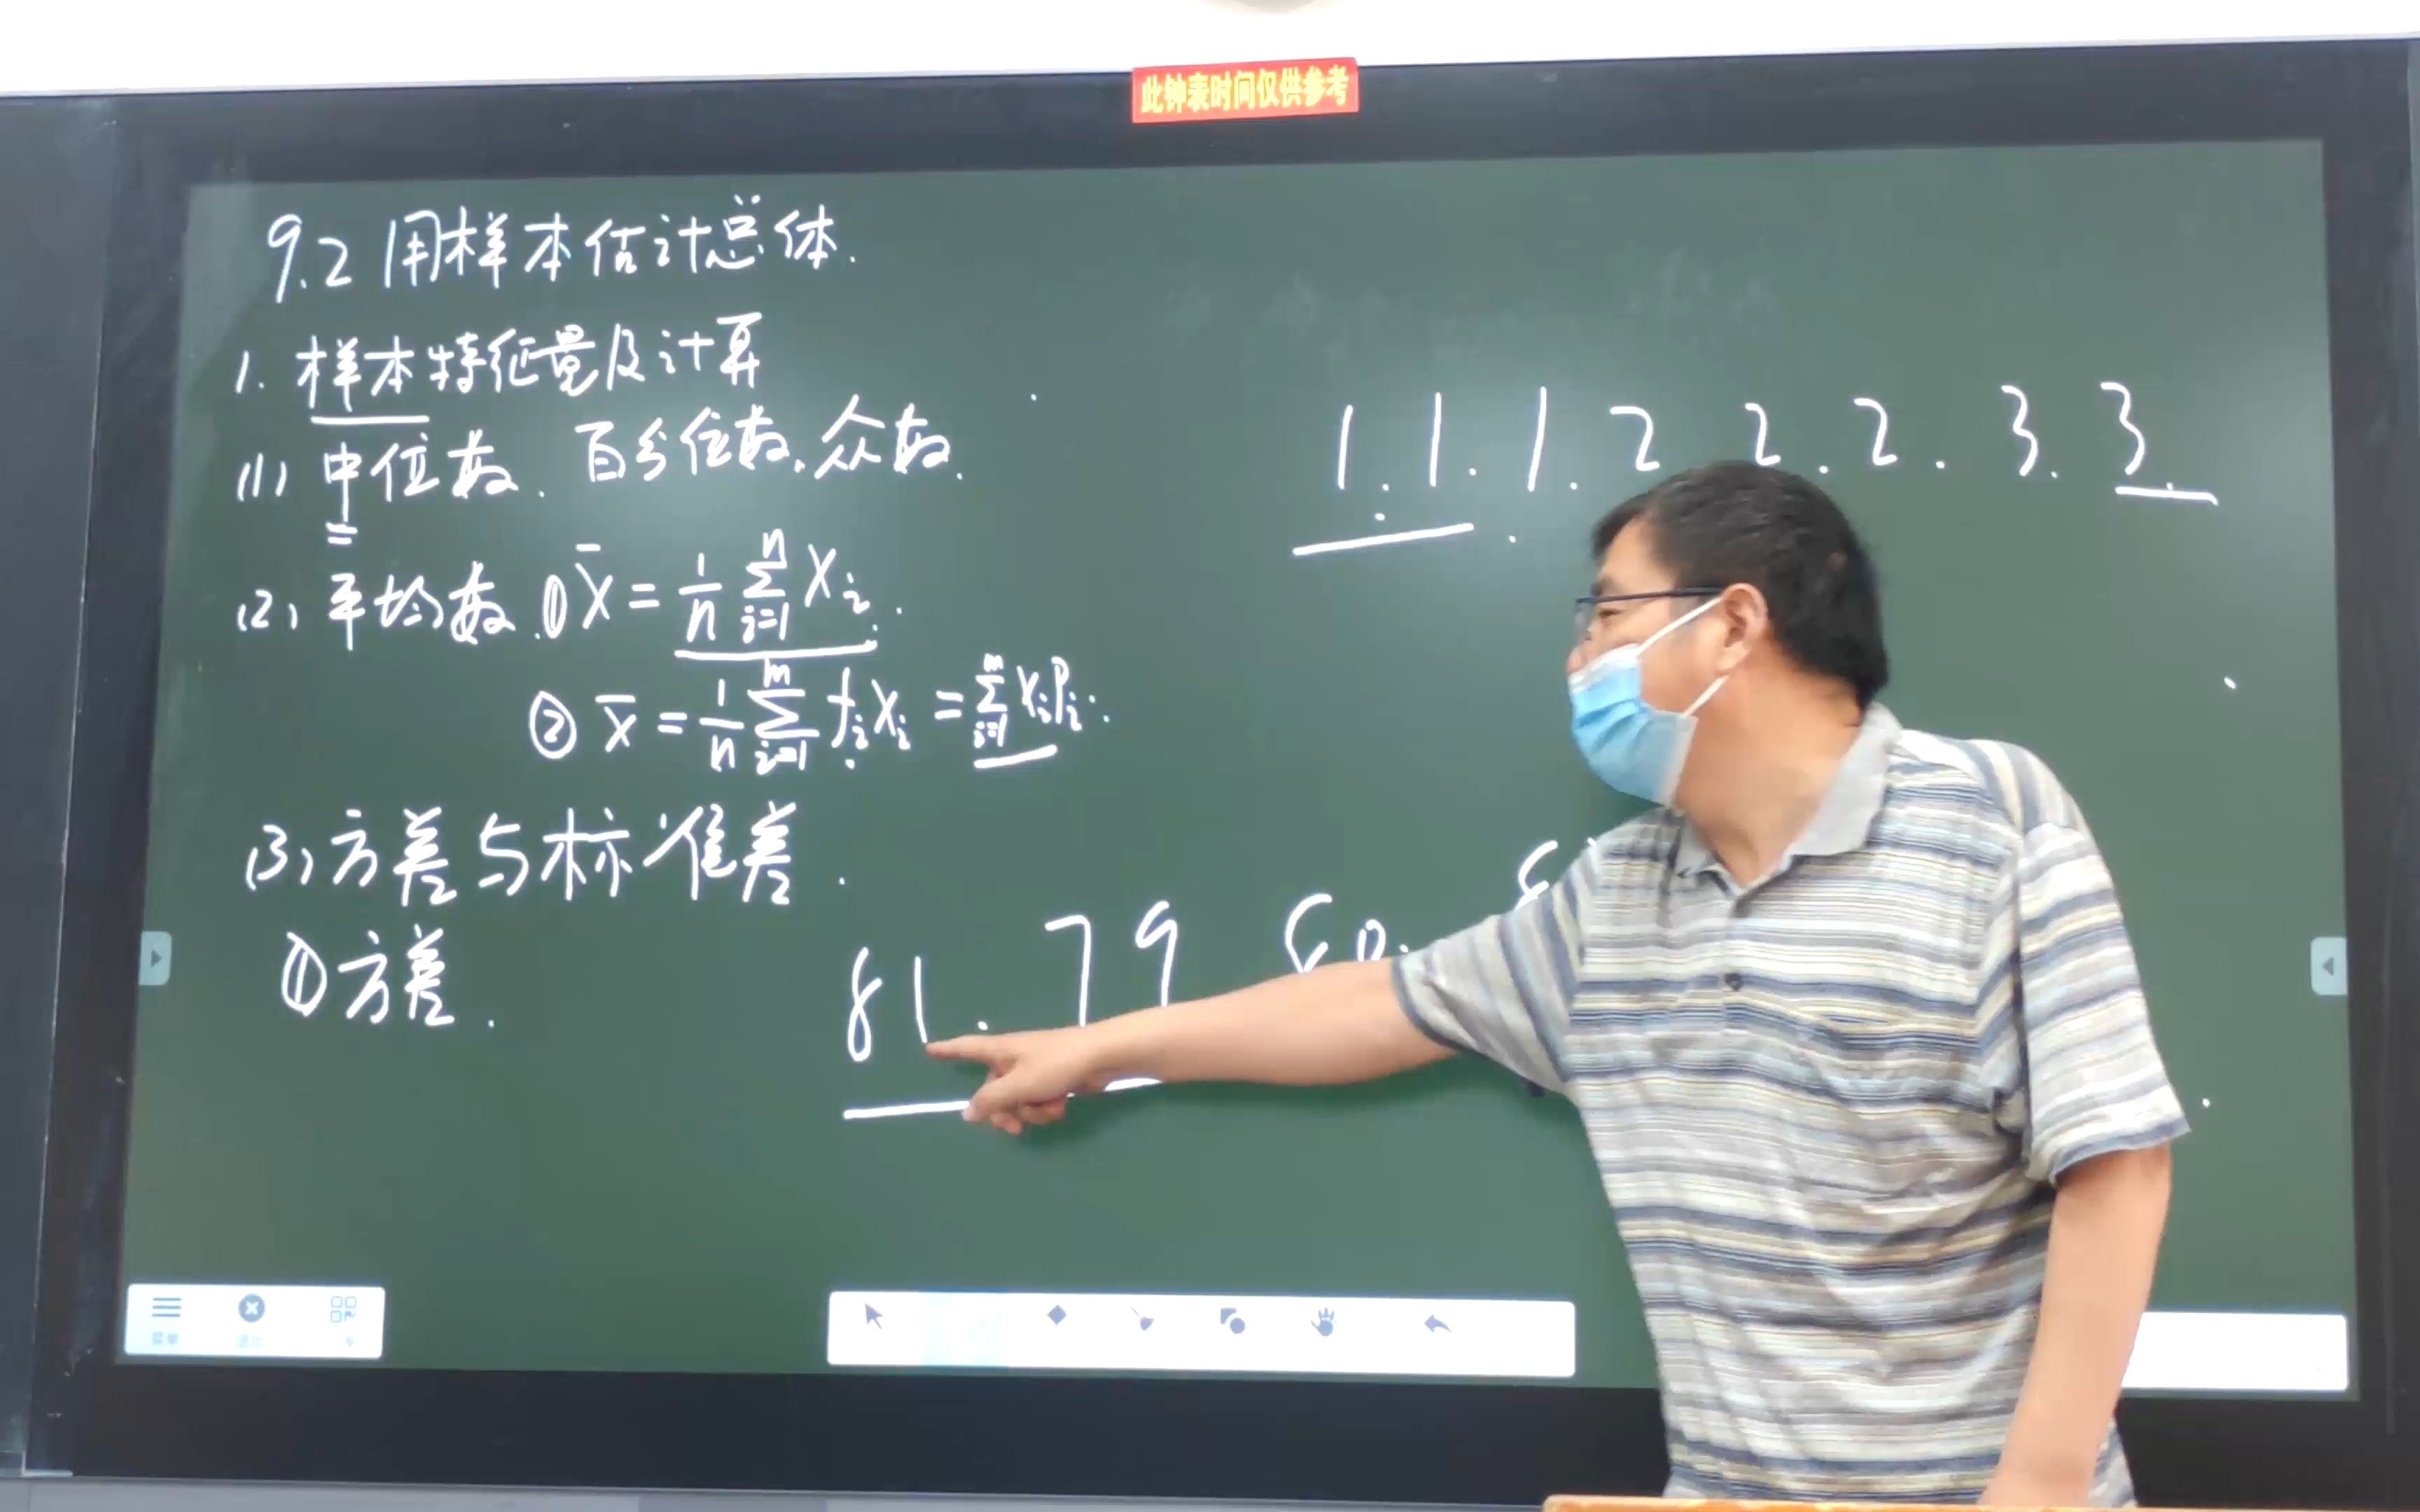 此钟表时间仅供参考
9.2 用样本估计总体.
1. 样本特征量及计算
(1) 中位数. 百分位数. 众数.
1. 1. 1. 2 2. 2. 3. 3.
(2) 平均数. ① x̄ = 1/n ∑_{i=1}^{n} x_i.
② x̄ = 1/n ∑_{i=1}^{m} f_i x_i = ∑_{i=1}^{m} x_i p_i.
(3) 方差与标准差.
① 方差.
81. 79 80.
菜单 退出